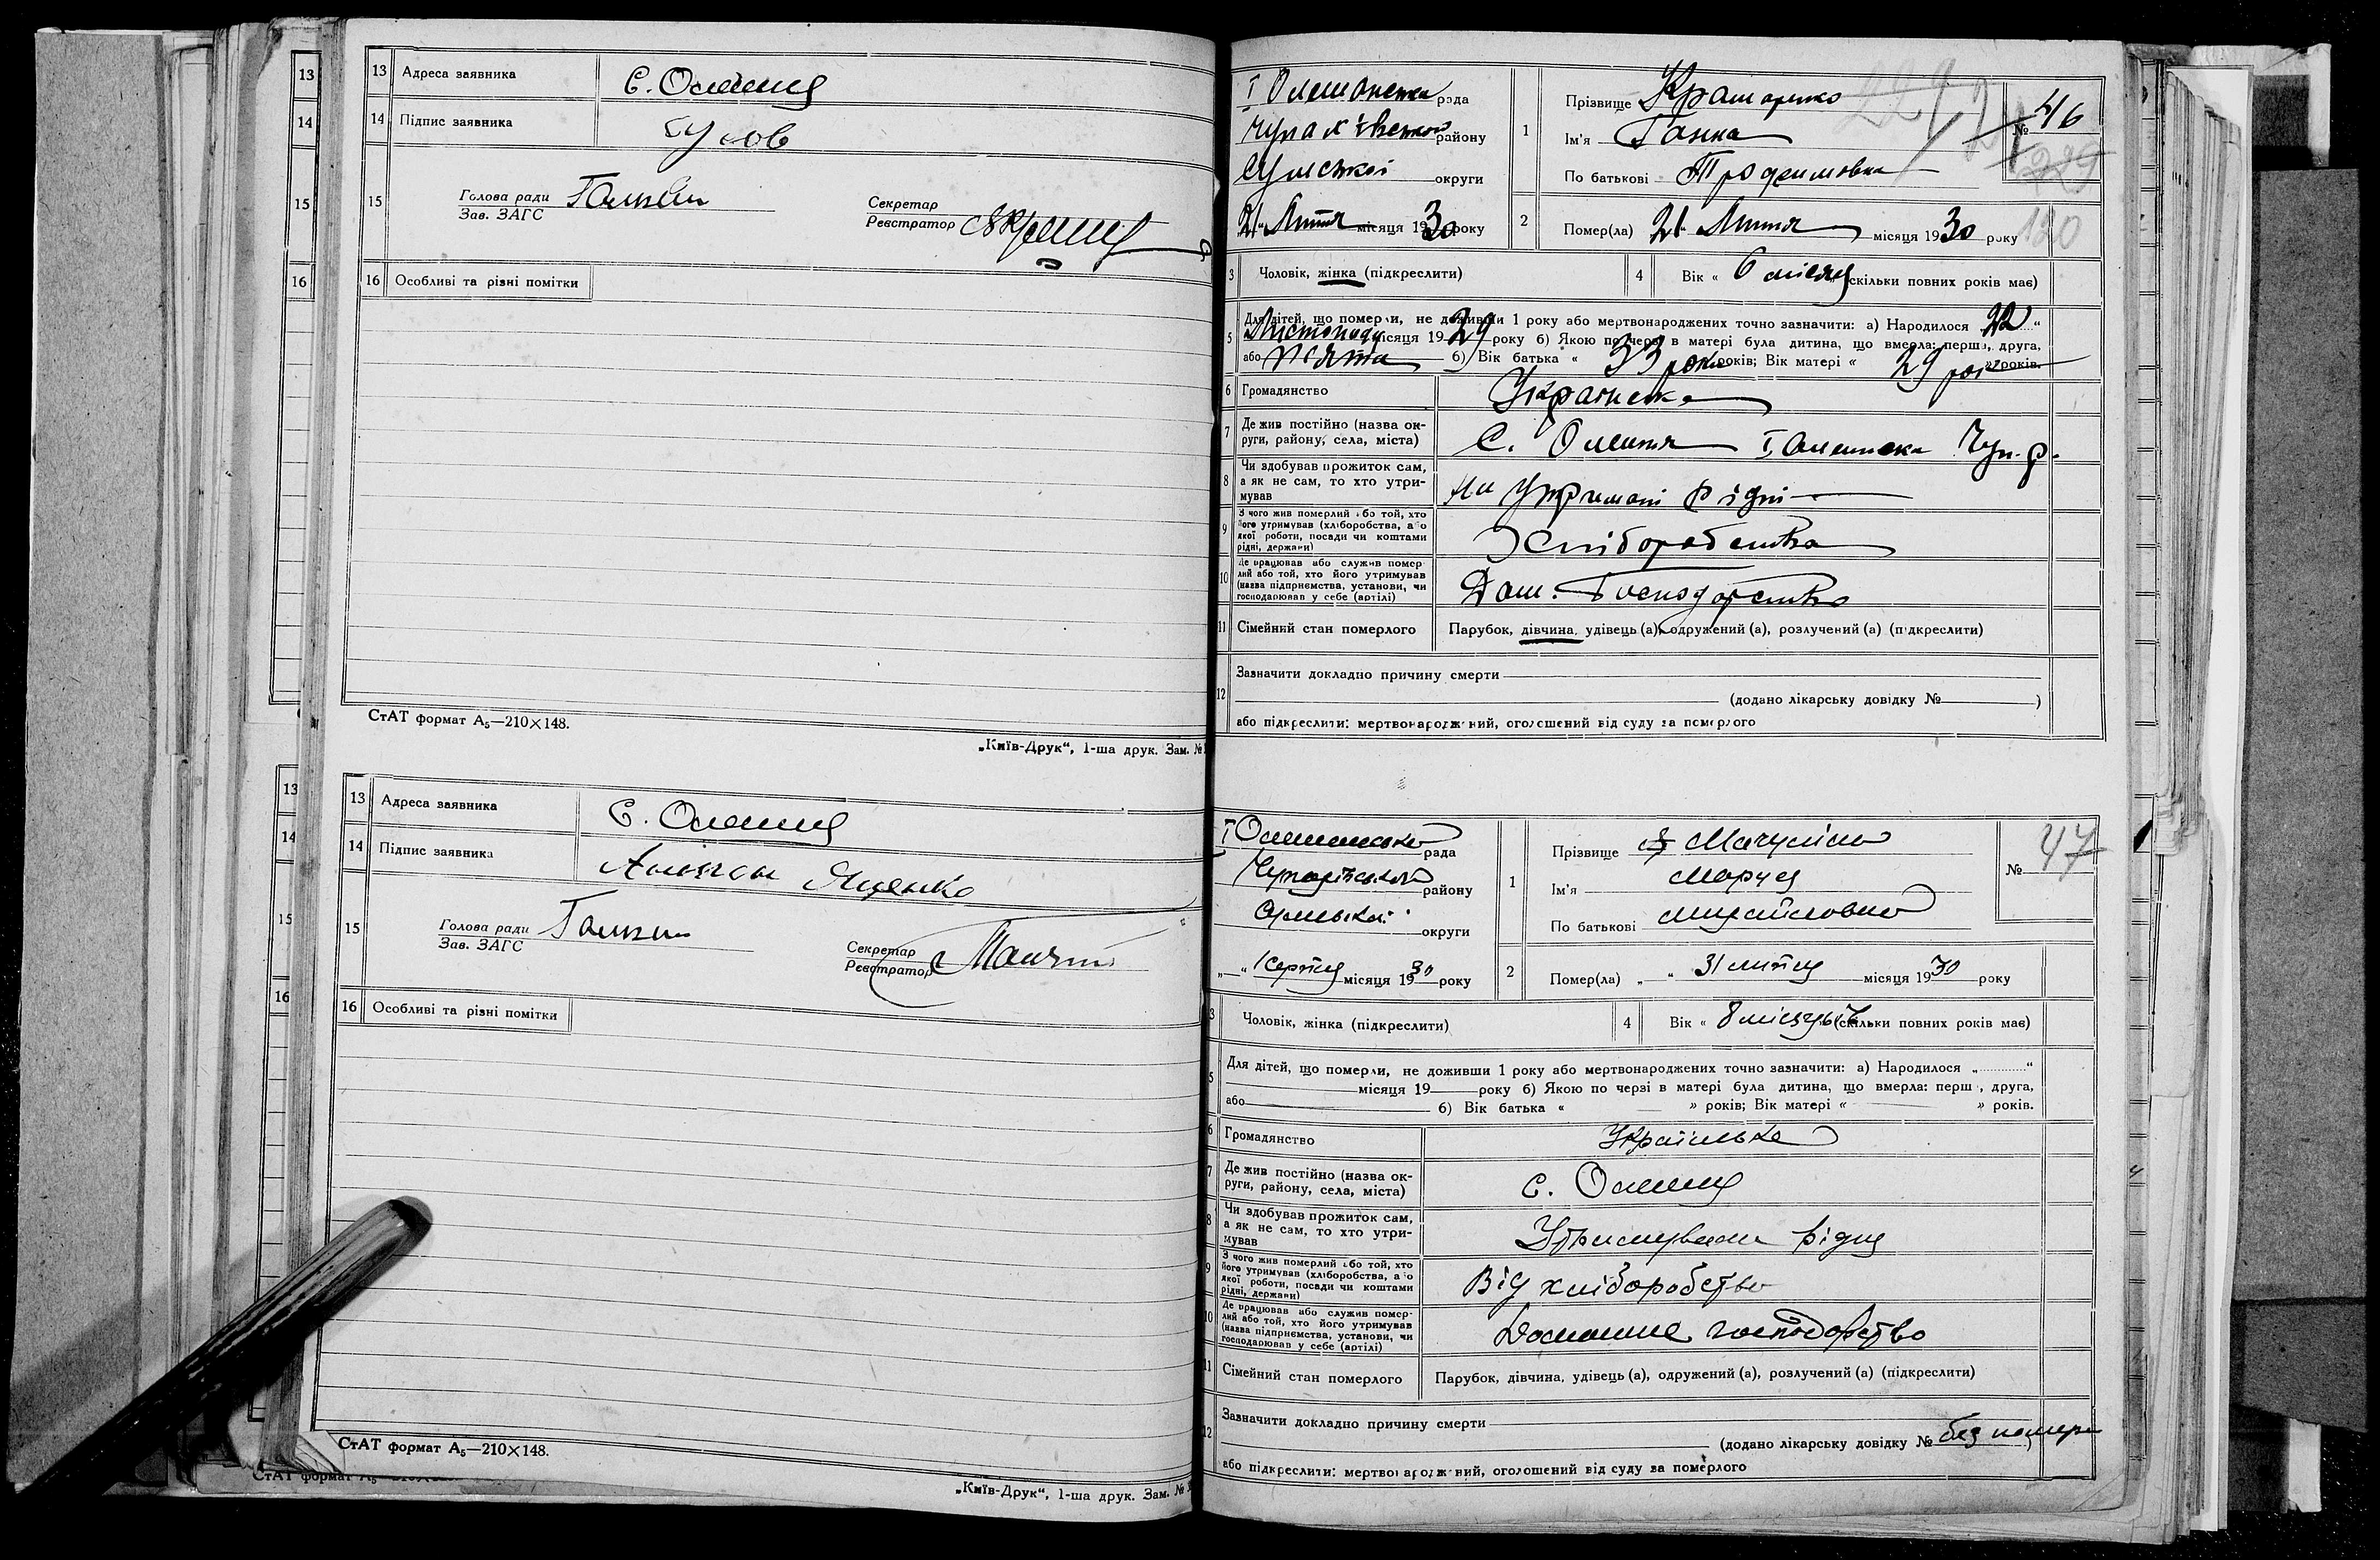 13
14
15
16
13 Адреса заявника С. Олешня
14 Підпис заявника
15 Голова ради
Зав. ЗАГС
Секретар
Реєстратор
16 Особливі та різні помітки
СтАТ формат А₅—210×148.
„Київ-Друк“, 1-ша друк. Зам. №
13
14
15
16
13 Адреса заявника С. Олешня
14 Підпис заявника Ященко
15 Голова ради
Зав. ЗАГС
Секретар
Реєстратор
16 Особливі та різні помітки
СтАТ формат А₅—210×148.
СтАТ формат А₅
„Київ-Друк“, 1-ша друк. Зам. №
І Олешанська рада
Чупахівського району
Сумської округи
„21“ Липня місяця 1930 року
1 Прізвище
Ім'я Ганна
По батькові Трофимовна
№ 46
229
120
2 Помер(ла) 21 Липня місяця 1930 року
3 Чоловік, жінка (підкреслити)
4 Вік « 6 місяц (скільки повних років має)
5 Для дітей, що померли, не доживши 1 року або мертвонароджених точно зазначити: а) Народилося „22“
Листопаду місяця 1929 року б) Якою по черзі в матері була дитина, що вмерла: перша, друга,
або п'ята б) Вік батька « 33 роки років; Вік матері « 29 рок » років.
6 Громадянство Українська
7 Де жив постійно (назва округи, району, села, міста) С. Олешня І Олешнська Чуп. р.
8 Чи здобував прожиток сам, а як не сам, то хто утримував На утримані рідні
9 З чого жив померлий або той, хто його утримував (хліборобства, або якої роботи, посади чи коштами рідні, держави) Хліборобства
10 Де працював або служив померлий або той, хто його утримував (назва підприємства, установи, чи господарював у себе (артілі) Дом. Господарство
11 Сімейний стан померлого Парубок, дівчина, удівець (а), одружений (а), розлучений (а) (підкреслити)
12 Зазначити докладно причину смерти
(додано лікарську довідку № )
або підкреслити: мертвонароджений, оголошений від суду за померлого
І Олешанська рада
Чупахівського району
Сумської округи
„ “ 1 серпня місяця 1930 року
1 Прізвище
Ім'я Маруся
По батькові Михайловна
№ 47
2 Помер(ла) „ “ 31 липня місяця 1930 року
3 Чоловік, жінка (підкреслити)
4 Вік « 8 місяців (скільки повних років має)
5 Для дітей, що померли, не доживши 1 року або мертвонароджених точно зазначити: а) Народилося „ “
місяця 19 року б) Якою по черзі в матері була дитина, що вмерла: перш , друга,
або б) Вік батька « » років; Вік матері « » років.
6 Громадянство Українська
7 Де жив постійно (назва округи, району, села, міста) с. Олешня
8 Чи здобував прожиток сам, а як не сам, то хто утримував Утримувала рідня
9 З чого жив померлий або той, хто його утримував (хліборобства, або якої роботи, посади чи коштами рідні, держави) Від хліборобства
10 Де працював або служив померлий або той, хто його утримував (назва підприємства, установи, чи господарював у себе (артілі) Домашнє господарство
11 Сімейний стан померлого Парубок, дівчина, удівець (а), одружений (а), розлучений (а) (підкреслити)
12 Зазначити докладно причину смерти
(додано лікарську довідку № без номера)
або підкреслити: мертвонароджений, оголошений від суду за померлого